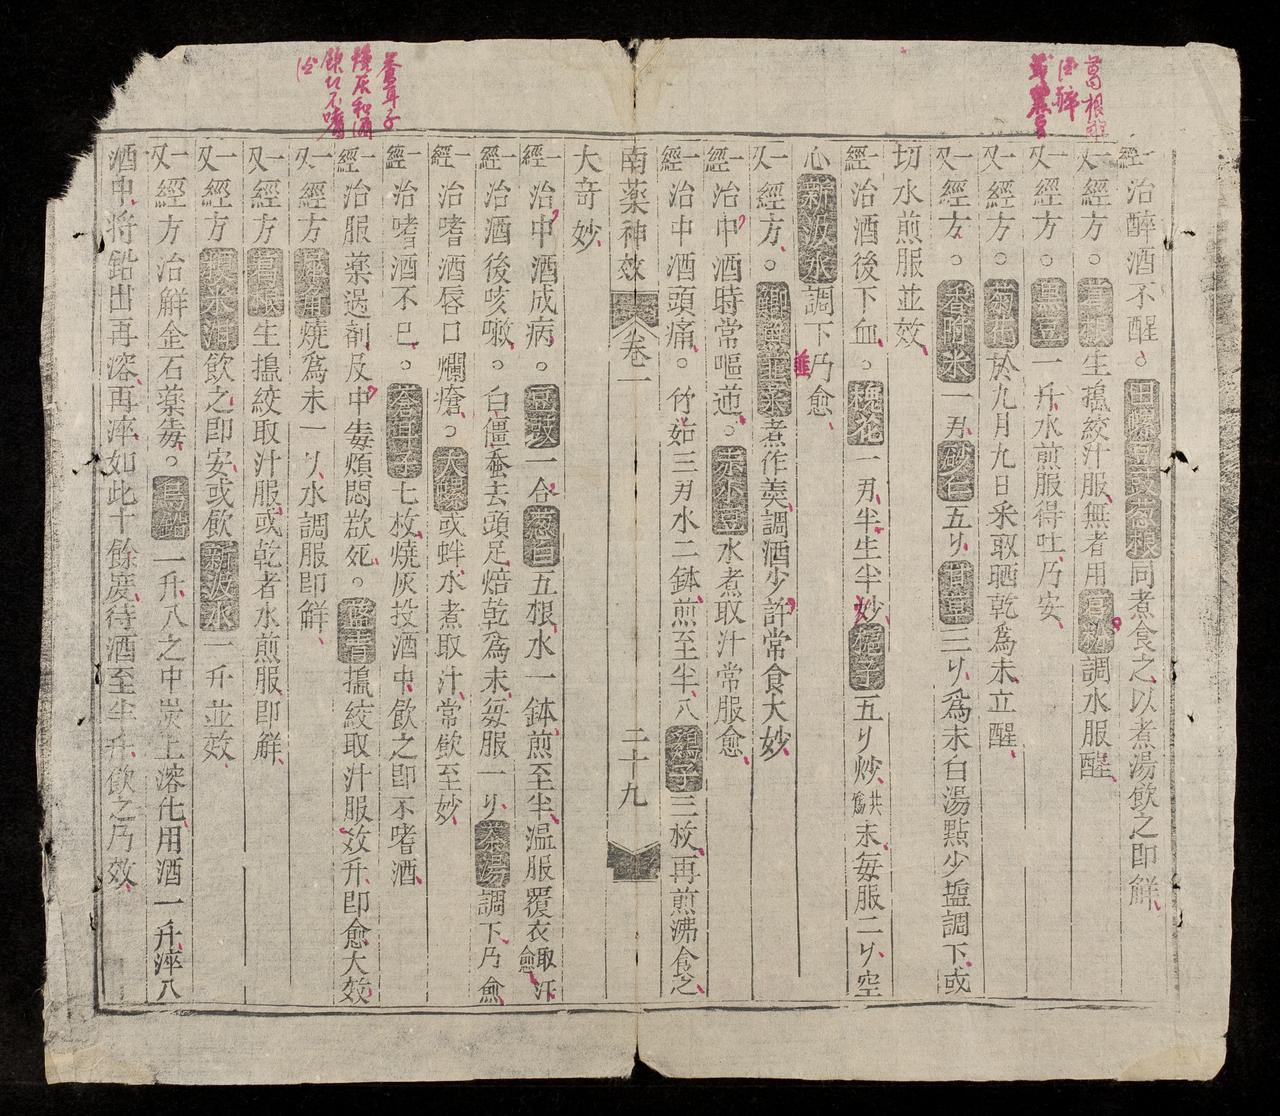 葛根
酒醉
一經治醉酒不醒。田螺豆豉葱根同煮食之以煮湯飲之即觧
一又經方。葛根生搗絞汁服無者用葛粉調水服醒
一又經方。黑豆一升水煎服得吐乃安
一又經方。菊花於九月九日采取晒乾為末立醒
一又經方。香附米一刄砂白五𠔃甘草三𠔃為末白湯點少塩調下或
切水煎服並效
一經治酒後下血。槐花一刄半生半妙梔子五𠔃炒共為末每服二𠔃空
心新汲水調下乃愈
一又經方。鯽魚韮菜煮作羮調酒少許常食大妙
韮
一經治中酒時常嘔逆。赤小豆水煮取汁常服愈
一經治中酒頭痛。竹茹三刄水二鉢煎至半入鷄子三枚再煎沸食之
南薬神效 卷一 二十九
大竒妙
一經治中酒成病。豆豉一合葱白五根水一鉢煎至半温服覆衣取汗愈
一經治酒後咳嗽。白僵蚕去頭足焙乾為末每服一𠔃茶湯調下乃愈
一經治嗜酒唇口爛瘡。大螺或蚌水煮取汁常飲至妙
一經治嗜酒不已。蒼耳子七枚燒灰投酒中飲之即不嗜酒
蒼耳子
燒灰和酒
飲行不嗜
一經治服薬過剤及中毒煩悶欲死。藍青搗絞取汁服效升即愈大效
一又經方犀角燒為末一𠔃水調服即觧
一又經方葛根生搗絞取汁服或乾者水煎服即觧
一又經方粳米泔飲之即安或飲新汲水一升並效
一又經方治觧金石薬毒。烏鉛一升入之中炭上溶化用酒一升淬入
酒中將鉛出再溶再淬如此十餘度待酒至半升飲之乃效